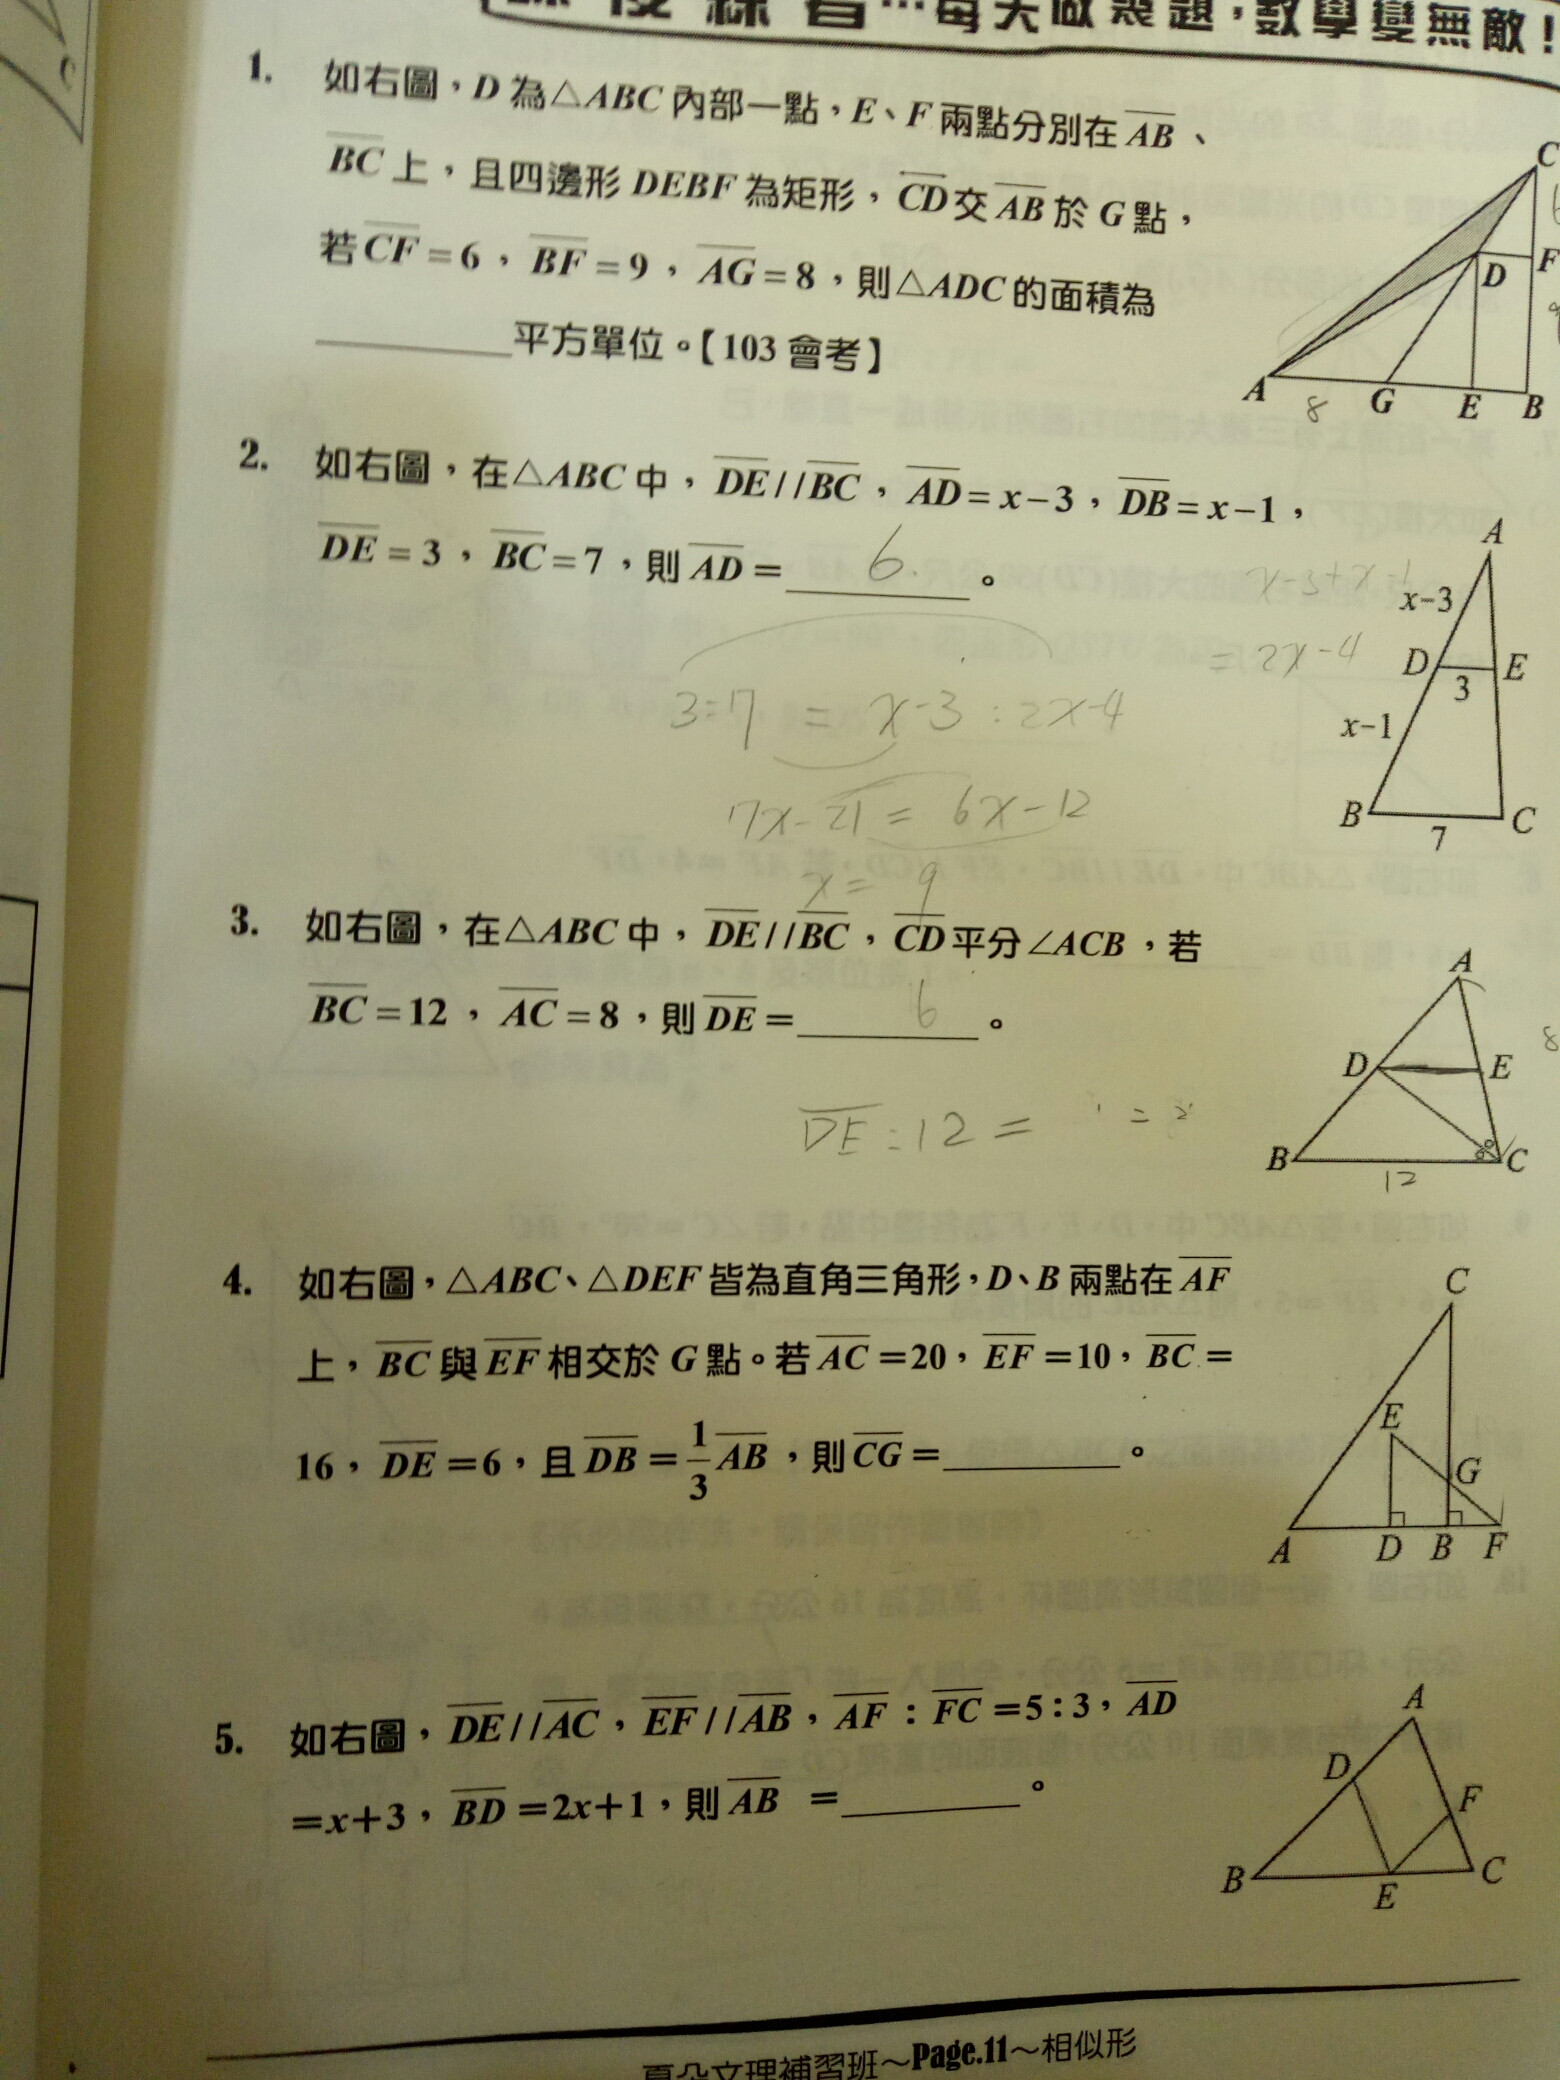 課後練習…每天做幾題，數學變無敵！
1. 如右圖，D 為△ABC 內部一點，E、F 兩點分別在 AB、
BC 上，且四邊形 DEBF 為矩形，CD 交 AB 於 G 點，
若 CF＝6，BF＝9，AG＝8，則△ADC 的面積為
______平方單位。【103 會考】
C
F
D
A
G
E
B
8
2. 如右圖，在△ABC 中，DE//BC，AD＝x−3，DB＝x−1，
DE＝3，BC＝7，則 AD＝ 6 。
x-3+x-1
= 2x-4
3:7 = x-3 : 2x-4
7x-21 = 6x-12
x = 9
A
x−3
D
E
3
x−1
B
C
7
3. 如右圖，在△ABC 中，DE//BC，CD 平分∠ACB，若
BC＝12，AC＝8，則 DE＝ 6 。
DE : 12 =
A
8
D
E
B
C
12
4. 如右圖，△ABC、△DEF 皆為直角三角形，D、B 兩點在 AF
上，BC 與 EF 相交於 G 點。若 AC＝20，EF＝10，BC＝
16，DE＝6，且 DB＝1/3 AB，則 CG＝______。
C
E
G
A
D
B
F
5. 如右圖，DE//AC，EF//AB，AF：FC＝5：3，AD
＝x＋3，BD＝2x＋1，則 AB ＝______。
A
D
F
B
E
C
文理補習班～Page.11～相似形